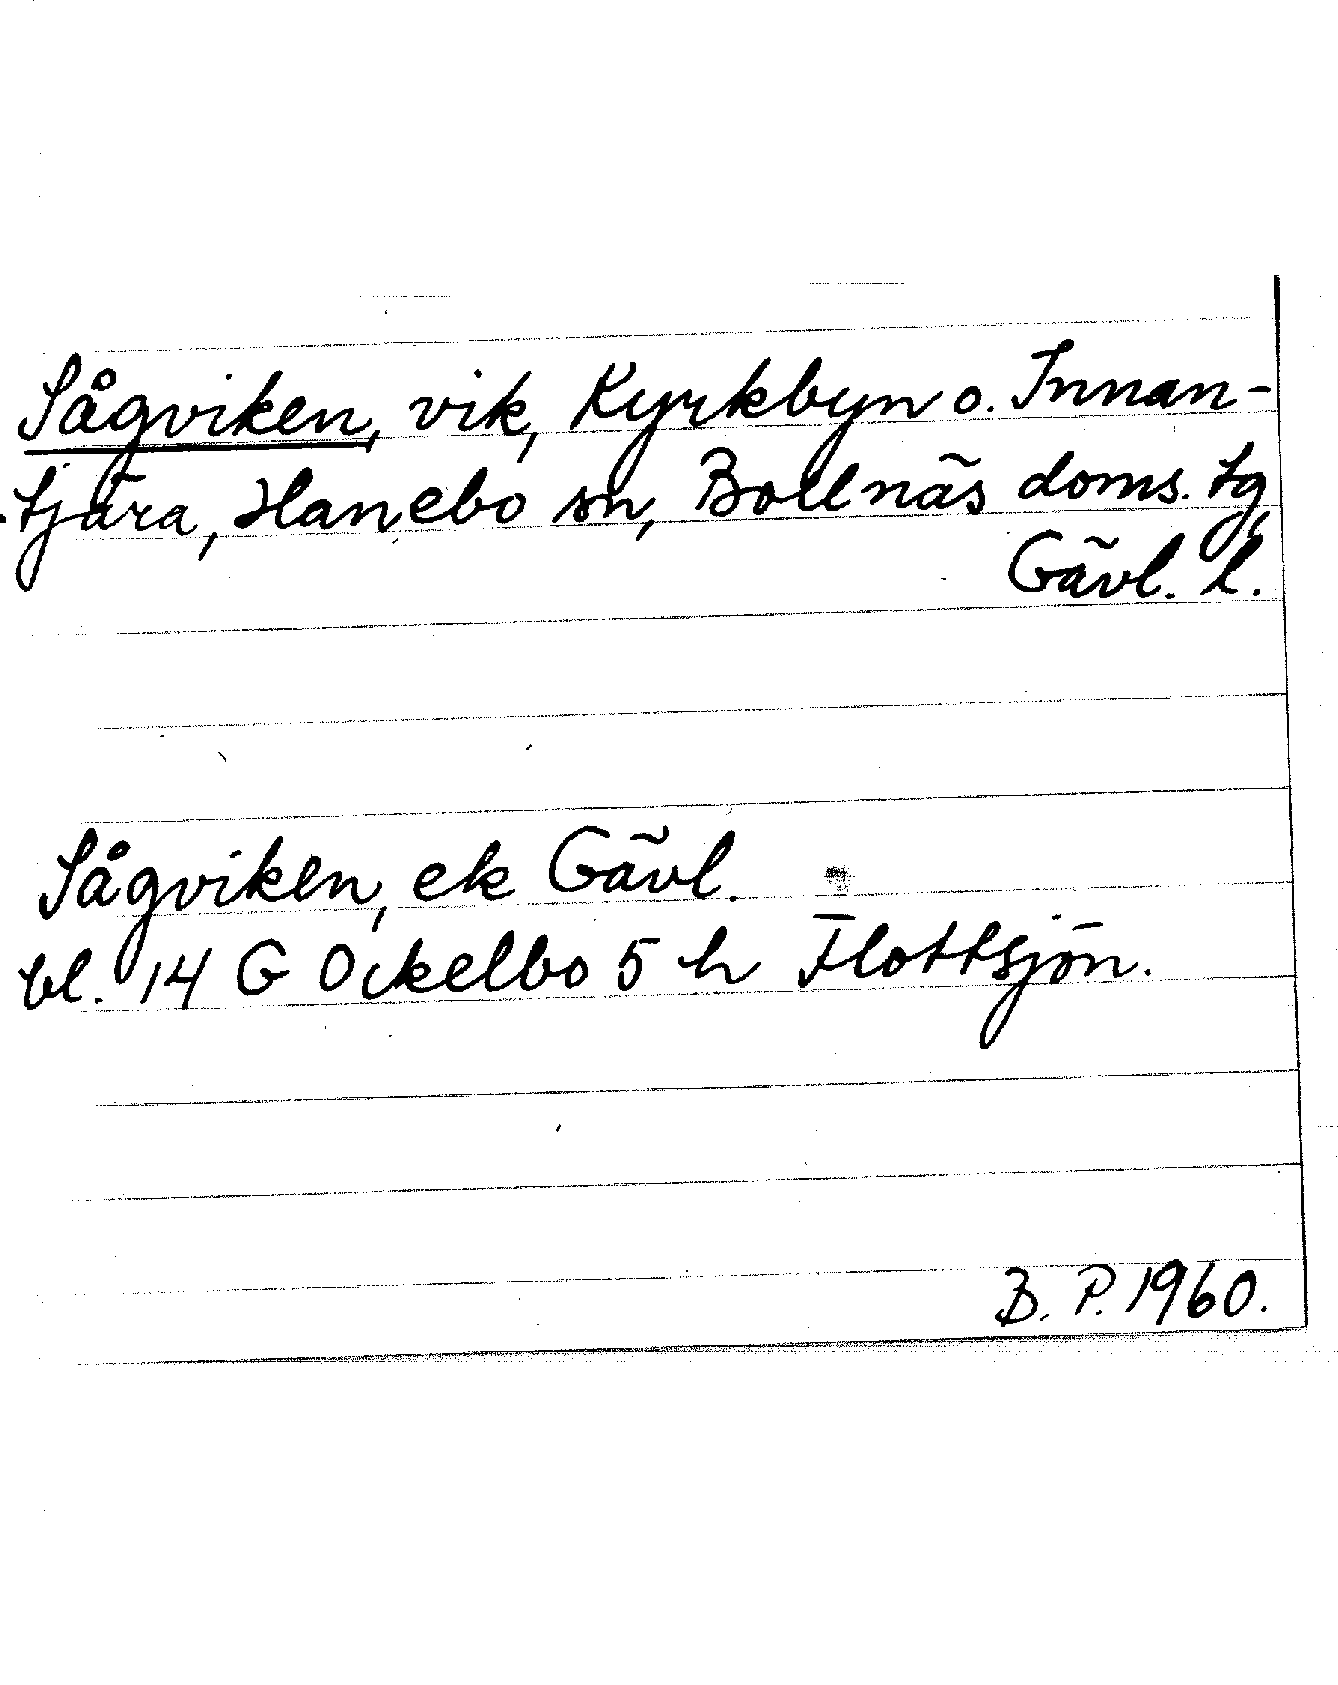 Sågviken, vik, Kyrkbyn o. Innan-
tjära, Hanebo sn, Bollnäs doms. tg,
Gävl. l.
Sågviken, ek Gävl.
bl. 14 G Ockelbo 5 h Flottsjön.
B. P. 1960.